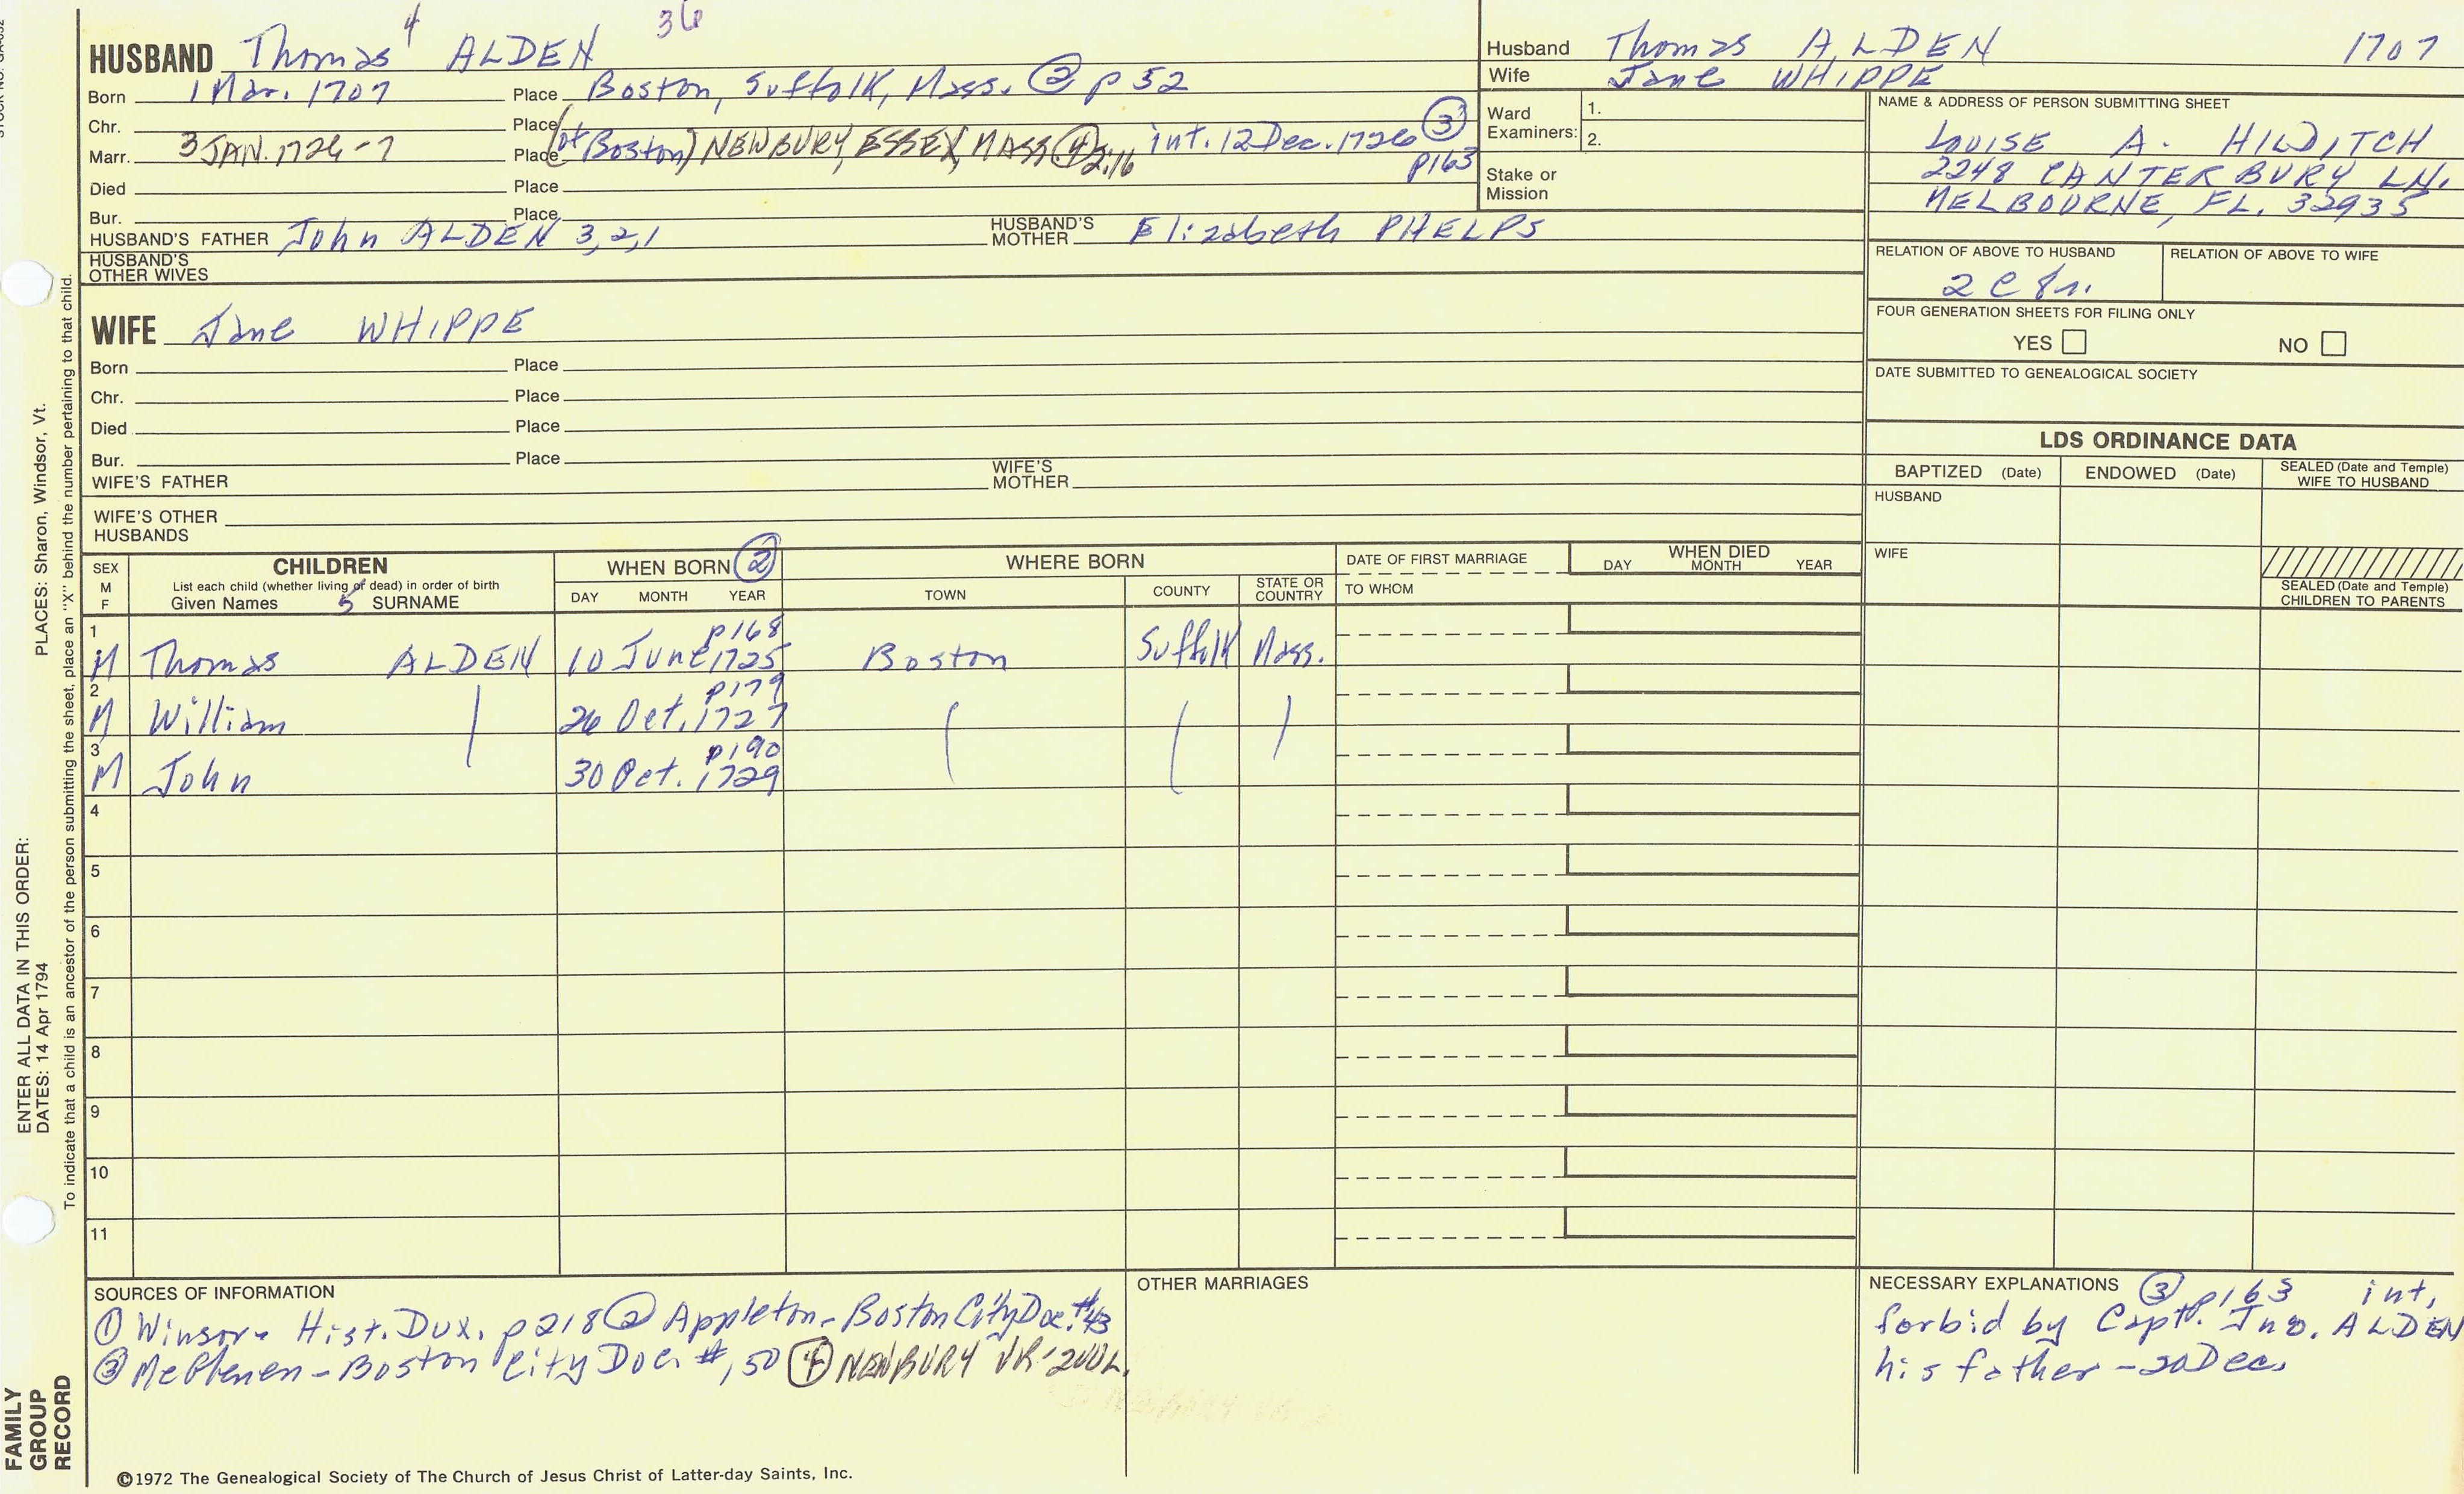 STOCK NO. GA-032
4
36
HUSBAND Thomas ALDEN
Born 1 Mar. 1707 Place Boston, Suffolk, Mass. ② p 52
Chr. Place
Marr. 3 JAN. 1726-7 Place (of Boston) NEWBURY, ESSEX, MASS ④ 2:16 int. 12 Dec. 1726 ③ p163
Died Place
Bur. Place
HUSBAND'S FATHER John ALDEN 3,2,1 HUSBAND'S MOTHER Elizabeth PHELPS
HUSBAND'S OTHER WIVES
Husband Thomas ALDEN 1707
Wife Jane WHIPPE
Ward Examiners: 1.
2.
Stake or Mission
NAME & ADDRESS OF PERSON SUBMITTING SHEET
LOUISE A. HILDITCH
2248 CANTERBURY LN.
MELBOURNE, FL. 32935
RELATION OF ABOVE TO HUSBAND RELATION OF ABOVE TO WIFE
2 C 8r.
FOUR GENERATION SHEETS FOR FILING ONLY
YES NO
DATE SUBMITTED TO GENEALOGICAL SOCIETY
WIFE Jane WHIPPE
Born Place
Chr. Place
Died Place
Bur. Place
WIFE'S FATHER WIFE'S MOTHER
WIFE'S OTHER HUSBANDS
LDS ORDINANCE DATA
BAPTIZED (Date) ENDOWED (Date) SEALED (Date and Temple) WIFE TO HUSBAND
HUSBAND
WIFE
SEALED (Date and Temple) CHILDREN TO PARENTS
SEX M F
CHILDREN
List each child (whether living or dead) in order of birth
Given Names 5 SURNAME
WHEN BORN ②
DAY MONTH YEAR
WHERE BORN
TOWN COUNTY STATE OR COUNTRY
DATE OF FIRST MARRIAGE
TO WHOM
WHEN DIED
DAY MONTH YEAR
1 p168
M Thomas ALDEN 10 June 1725 Boston Suffolk Mass.
2 p179
M William 26 Oct. 1727
3 p190
M John 30 Oct. 1729
4
5
6
7
8
9
10
11
SOURCES OF INFORMATION
① Winsor - Hist. Dux. p 218 ② Appleton - Boston City Doc. #43
③ McGlenen - Boston City Doc. #, 50 ④ NEWBURY VR
OTHER MARRIAGES
NECESSARY EXPLANATIONS ③ p163 int,
forbid by Capt. Jno. ALDEN
his father - 20 Dec.
©1972 The Genealogical Society of The Church of Jesus Christ of Latter-day Saints, Inc.
ENTER ALL DATA IN THIS ORDER:
DATES: 14 Apr 1794 PLACES: Sharon, Windsor, Vt.
To indicate that a child is an ancestor of the person submitting the sheet, place an "X" behind the number pertaining to that child.
FAMILY
GROUP
RECORD